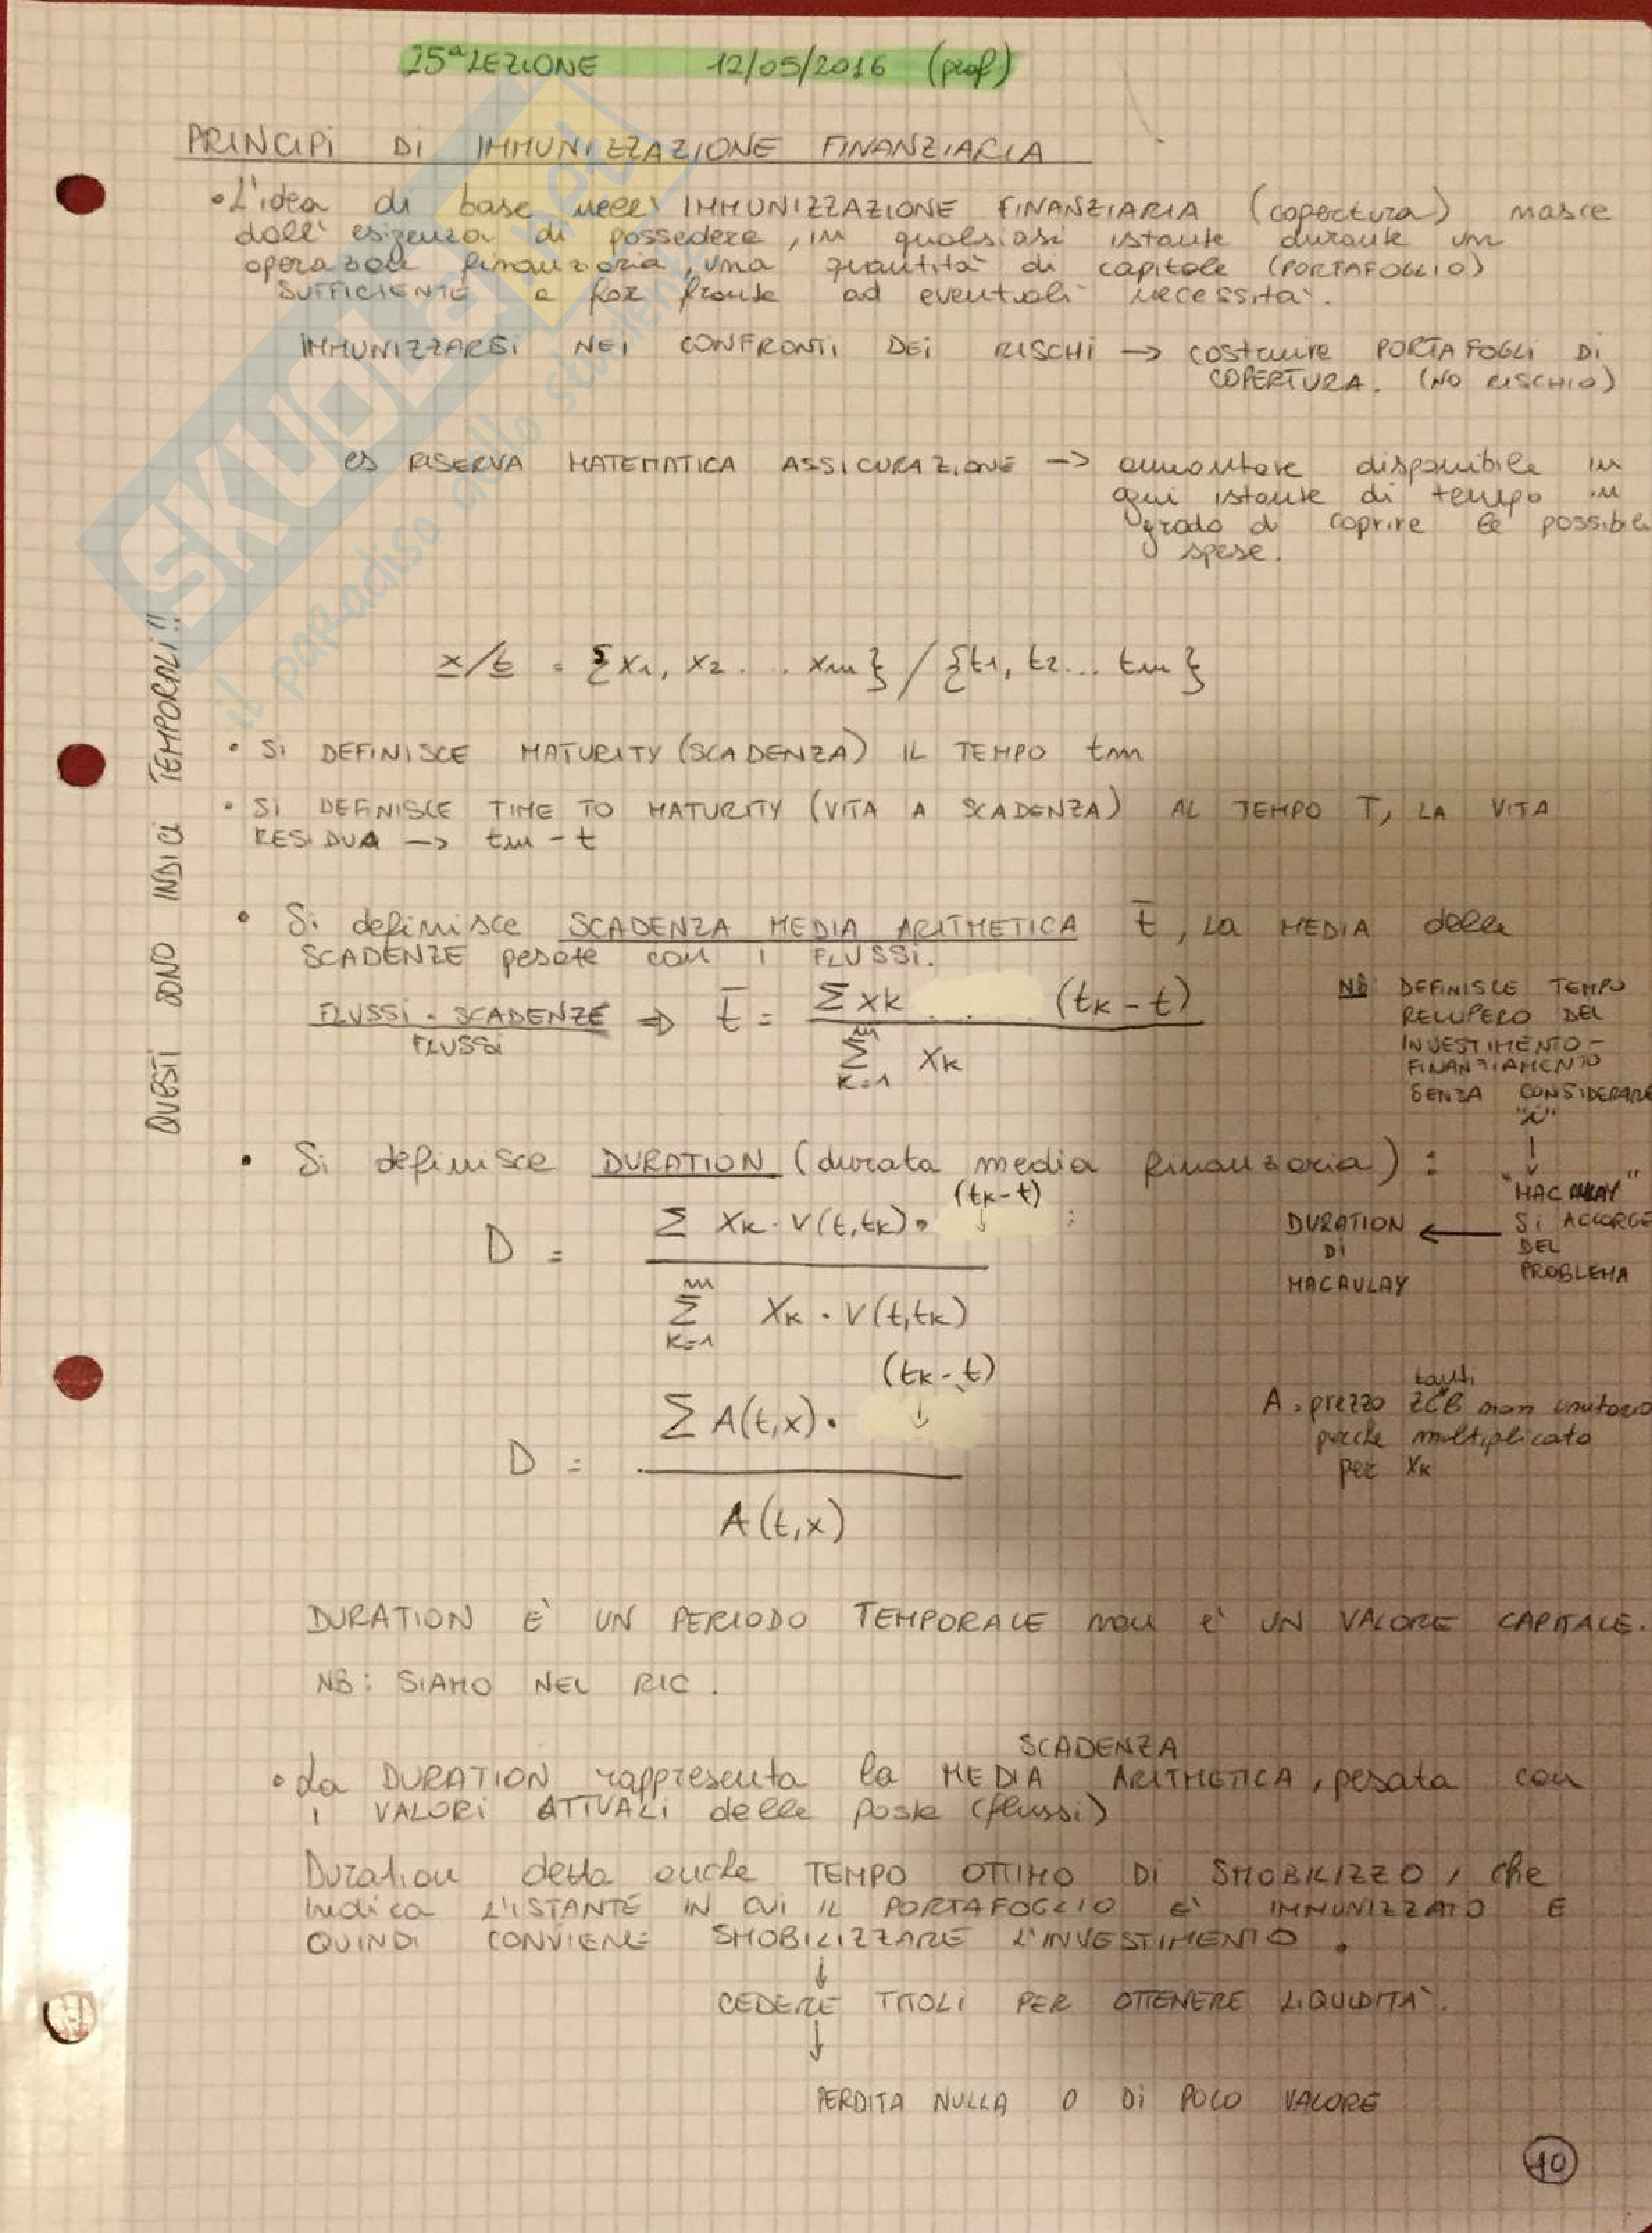 25ª LEZIONE 12/05/2016 (prof)
PRINCIPI DI IMMUNIZZAZIONE FINANZIARIA
• L'idea di base nell' IMMUNIZZAZIONE FINANZIARIA (copertura) nasce
dall' esigenza di possedere, in qualsiasi istante durante un
operazione finanziaria, una quantità di capitale (PORTAFOGLIO)
SUFFICIENTE a far fronte ad eventuali necessità.
IMMUNIZZARSI NEI CONFRONTI DEI RISCHI → costruire PORTAFOGLI DI
COPERTURA. (NO RISCHIO)
es RISERVA MATEMATICA ASSICURAZIONE → ammontare disponibile in
ogni istante di tempo in
grado di coprire le possibili
spese.
SKUOLA.net
il paradiso dello studente
QUESTI SONO INDICI TEMPORALI!!
x/t = {x1, x2 . . . xm} / {t1, t2... tm}
• SI DEFINISCE MATURITY (SCADENZA) IL TEMPO tm
• SI DEFINISCE TIME TO MATURITY (VITA A SCADENZA) AL TEMPO T, LA VITA
RESIDUA → tm - t
• Si definisce SCADENZA MEDIA ARITMETICA t̄, LA MEDIA delle
SCADENZE pesate con i FLUSSI.
FLUSSI · SCADENZE / FLUSSI ⇒ t̄ = Σ xk (tk - t) / Σ(k=1..m) xk
NB DEFINISCE TEMPO
RECUPERO DEL
INVESTIMENTO -
FINANZIAMENTO
SENZA CONSIDERARE
"i"
↓
"MACAULAY"
SI ACCORGE
DEL
PROBLEMA
• Si definisce DURATION (durata media finanziaria) :
D = Σ xk · v(t,tk) · (tk - t) / Σ(k=1..m) xk · v(t,tk)
DURATION ←
DI
MACAULAY
D = Σ A(t,x) · (tk - t) / A(t,x)
A = prezzo tanti ZCB non unitario
perche moltiplicato
per xk
DURATION E' UN PERIODO TEMPORALE non è UN VALORE CAPITALE.
NB: SIAMO NEL RIC.
• La DURATION rappresenta la MEDIA SCADENZA ARITMETICA, pesata con
i VALORI ATTUALI delle poste (flussi)
Duration detta anche TEMPO OTTIMO DI SMOBILIZZO, che
indica L'ISTANTE IN CUI IL PORTAFOGLIO E' IMMUNIZZATO E
QUINDI CONVIENE SMOBILIZZARE L'INVESTIMENTO.
↓
CEDERE TITOLI PER OTTENERE LIQUIDITA'.
↓
PERDITA NULLA O DI POCO VALORE
10